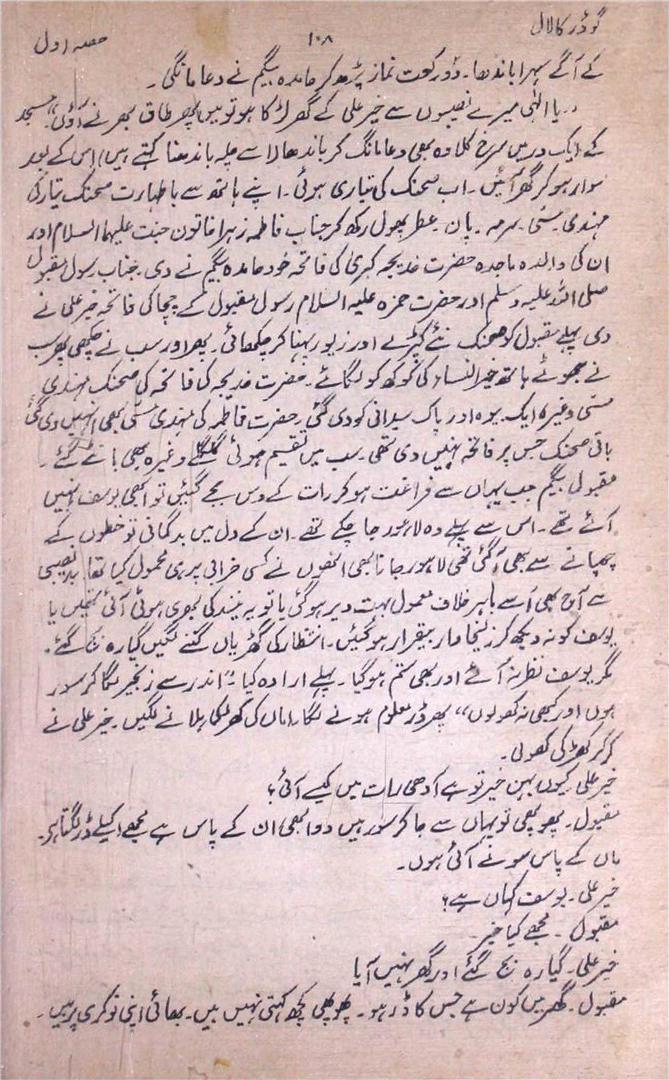 گوڈر کا لال ۱۰۸ حصہ اول
کے آگے سہرا باندھا۔ دو رکعت نماز پڑھ کر حامدہ بیگم نے دعا مانگی۔
"یا الٰہی میرے نصیبوں سے خیر علی کے گھر لڑکا ہو تو میں پھر طاق بھرنے آؤں" مسجد
کے ایک در میں سرخ کلاوہ بھی دعا مانگ کر باندھا (اسے چلہ باندھنا کہتے ہیں) اس کے بعد
سوار ہو کر گھر آئیں۔ اب صحنک کی تیاری ہوئی۔ اپنے ہاتھ سے باطہارت صحنک تیار کی
مہندی۔ مسی۔ سرمہ۔ پان۔ عطر پھول رکھ کر جناب فاطمہ زہرا خاتون جنت علیہا السلام اور
ان کی والدہ ماجدہ حضرت خدیجہ کبریٰ کی فاتحہ خود حامدہ بیگم نے دی۔ جناب رسول مقبول
صلی اللہ علیہ وسلم اور حضرت حمزہ علیہ السلام رسول مقبول کے چچا کی فاتحہ خیر علی نے
دی پہلے مقبول کو صحنک نئے کپڑے اور زیور پہنا کر چکھائی۔ پھر اور سب نے چکھی پھر سب
نے جھوٹے ہاتھ خیر النساء کی کوکھ کو لگائے۔ حضرت خدیجہ کی فاتحہ کی صحنک مہندی
مسی وغیرہ ایک بیوہ اور پاک سیدانی کو دی گئی۔ حضرت فاطمہ کی مہندی مسی بھی انہیں دی گئی
باقی صحنک جس پر فاتحہ نہیں دی تھی۔ سب میں تقسیم ہوئی گلگلے وغیرہ بھی بانٹے گئے۔
مقبول بیگم جب یہاں سے فراغت ہو کر رات کے دس بجے گئیں تو ابھی یوسف نہیں
آئے تھے۔ اس سے پہلے وہ لاہور جا چکے تھے۔ ان کے دل میں بدگمانی تو خطوں کے
چھپانے سے بھی آ گئی تھی لاہور جانا بھی انھوں نے کسی خرابی پر ہی محمول کیا تھا بدنصیبی
سے آج بھی اسے باہر خلاف معمول بہت دیر ہو گئی یا تو یہ نیند کی بھری ہوئی آئی تھیں یا
یوسف کو نہ دیکھ کر زلیخا وار بیقرار ہو گئیں۔ انتظار کی گھڑیاں گننے لگیں گیارہ بج گئے۔
مگر یوسف نظر نہ آئے اور بھی ستم ہو گیا۔ پہلے ارادہ کیا "اندر سے زنجیر لگا کر سو رہوں
اور کبھی نہ کھولوں" پھر ڈر معلوم ہونے لگا۔ اماں کی کھڑکی ہلانے لگیں۔ خیر علی نے
کھڑکی کھولی۔
خیر علی۔ کیوں بہن خیر تو ہے آدھی رات میں کیسے آئی؟
مقبول۔ پھوپھی تو یہاں سے جا کر سو رہیں دوا بھی ان کے پاس ہے مجھے اکیلے ڈر لگتا ہے۔
ماں کے پاس سونے آئی ہوں۔
خیر علی۔ یوسف کہاں ہے؟
مقبول۔ مجھے کیا خبر۔
خیر علی۔ گیارہ بج گئے اور گھر نہیں آیا
مقبول۔ گھر میں کون ہے جس کا ڈر ہو۔ پھوپھی کچھ کہتی نہیں ہیں۔ بھائی اپنی نوکری پر ہیں۔